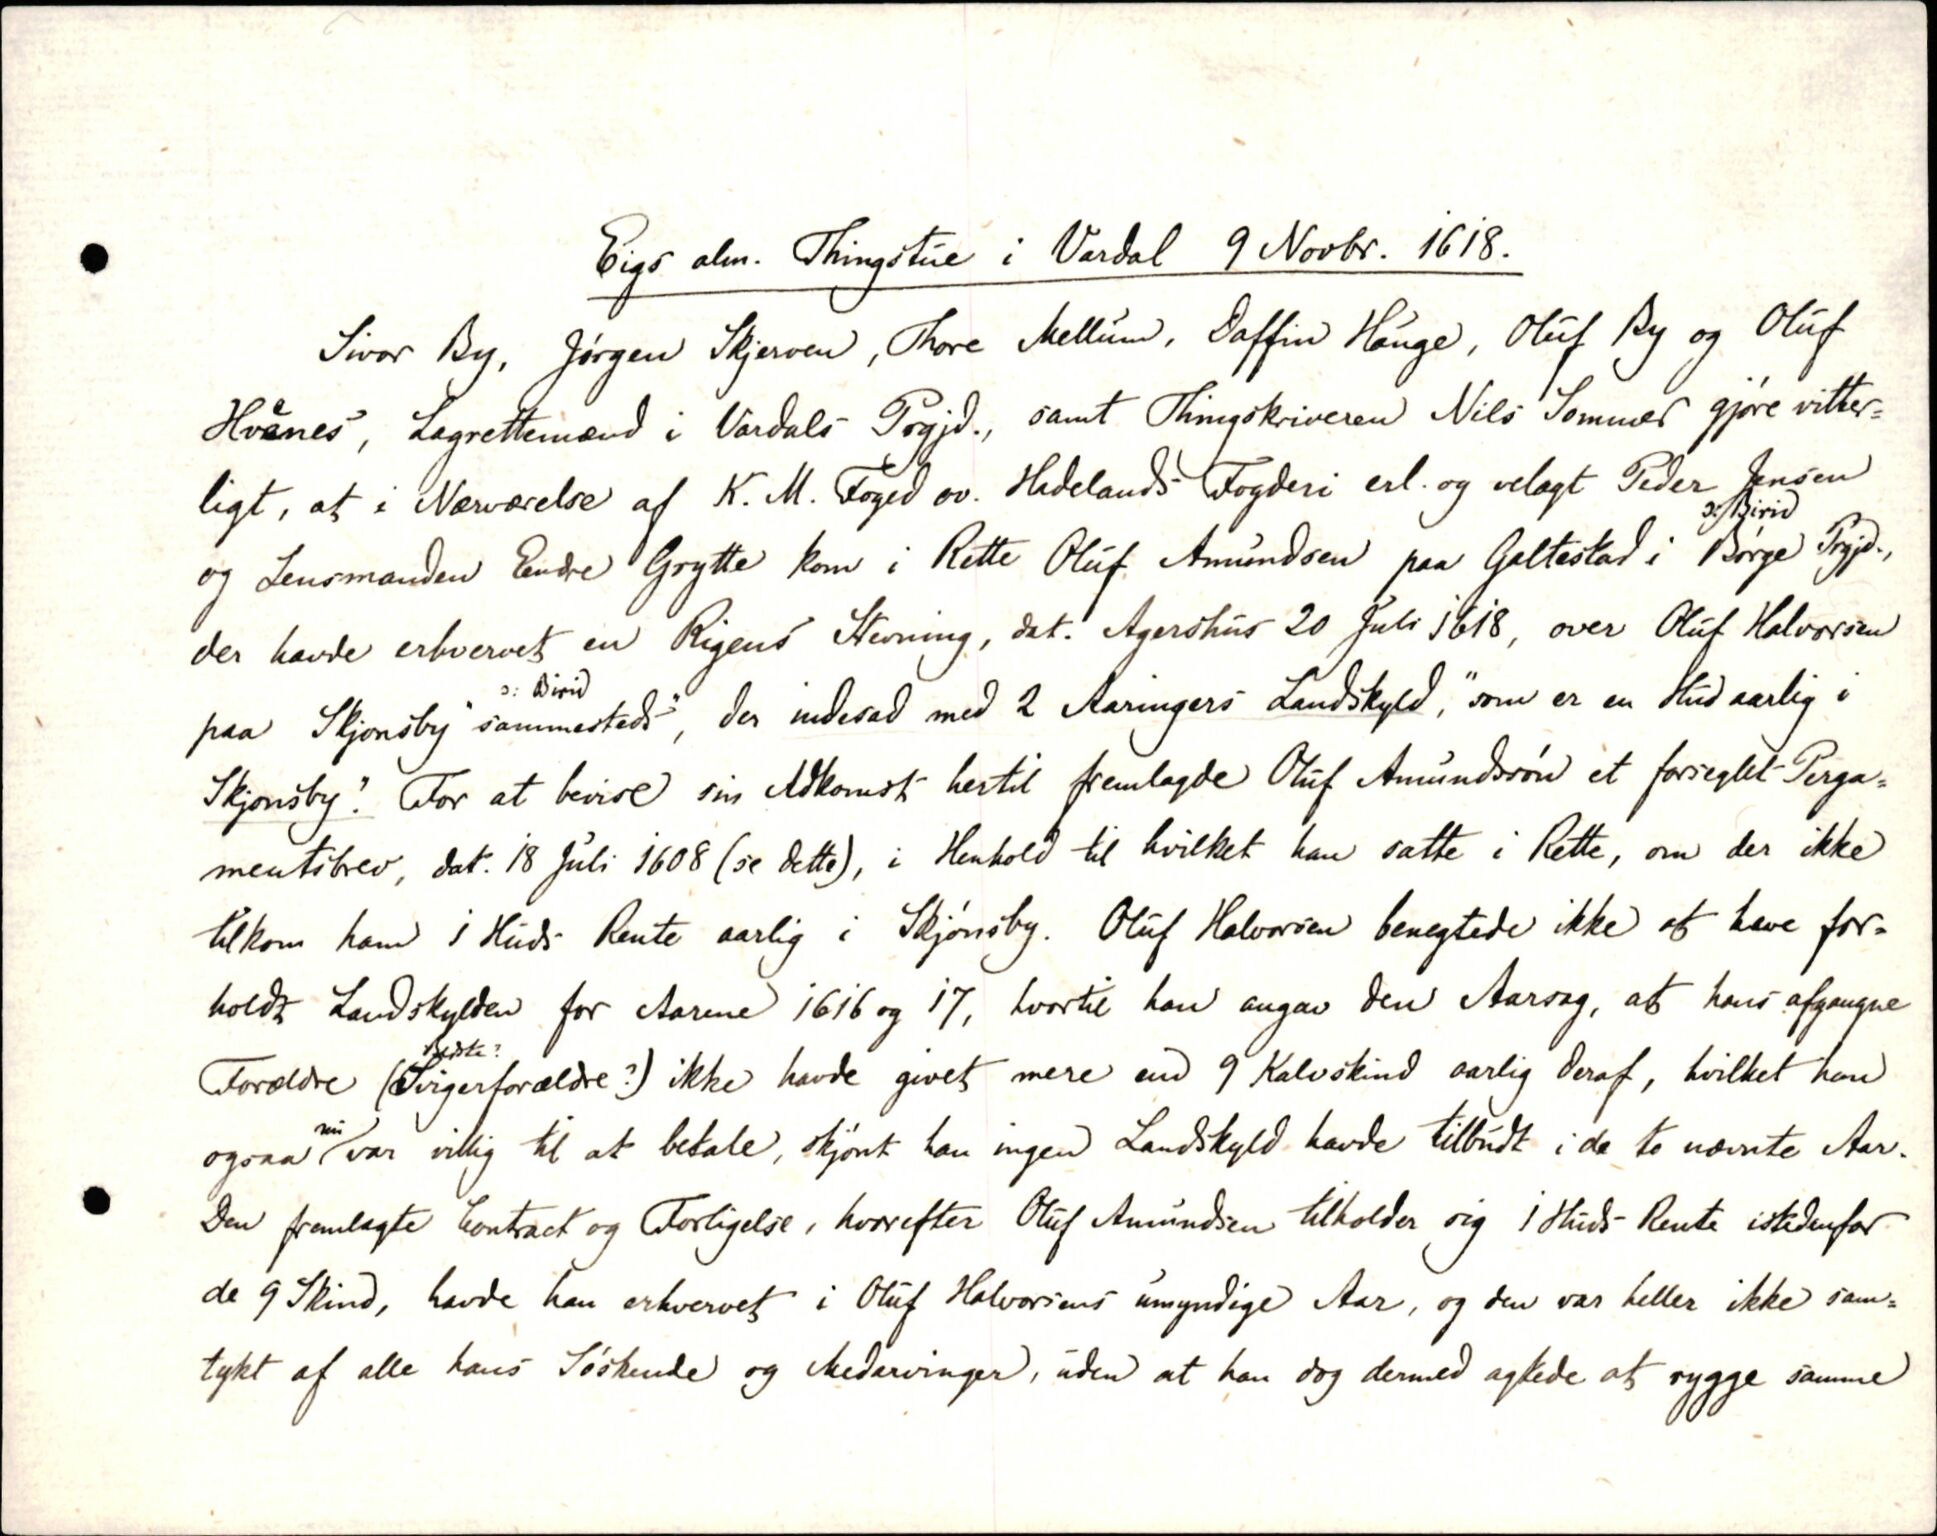 Eigs alm. Thingstue i Vardal 9 Novbr. 1618.
Sivor By, Jørgen Skjerven, Thore Mellum, Daffin Hauge, Oluf By og Oluf
Hvånes, Lagrettemænd i Vardals Prgjd., samt Thingskriveren Nils Sommer gjøre vitter=
ligt, at i Nærværelse af K. M. Foged ov. Hadelands Fogderi erl. og velagt Peder Jensen
og Lensmanden Endre Grytte kom i Rette Oluf Amundsen paa Galtestad i Børge Prgjd.,
ɔ: Birid
der havde erhvervet en Rigens Stevning, dat. Agershus 20 Juli 1618, over Oluf Halvorsen
paa Skjonsby "sammesteds", der indesad med 2 Aaringers Landskyld, "som er en Hud aarlig i
ɔ: Birid
Skjonsby". For at bevise sin Adkomst hertil fremlagde Oluf Amundssøn et forseglet Perga=
mentsbrev, dat. 18 Juli 1608 (se dette), i Henhold til hvilket han satte i Rette, om der ikke
tilkom ham 1 Huds Rente aarlig i Skjønsby. Oluf Halvorsen benegtede ikke at have for=
holdt Landskylden for Aarene 1616 og 17, hvortil han angav den Aarsag, at hans afgangne
Forældre (Svigerforældre?) ikke havde givet mere end 9 Kalvskind aarlig deraf, hvilket han
Bedste?
ogsaa nu var villig til at betale, skjønt han ingen Landskyld havde tilbudt i de to nævnte Aar.
Den fremlagte Contract og Forligelse, hvorefter Oluf Amundsen tilholder sig 1 Huds Rente istedenfor
de 9 Skind, havde han erhvervet i Oluf Halvorsens umyndige Aar, og den var heller ikke sam=
tykt af alle hans Søskende og Medarvinger, uden at han dog dermed agtede at rygge samme